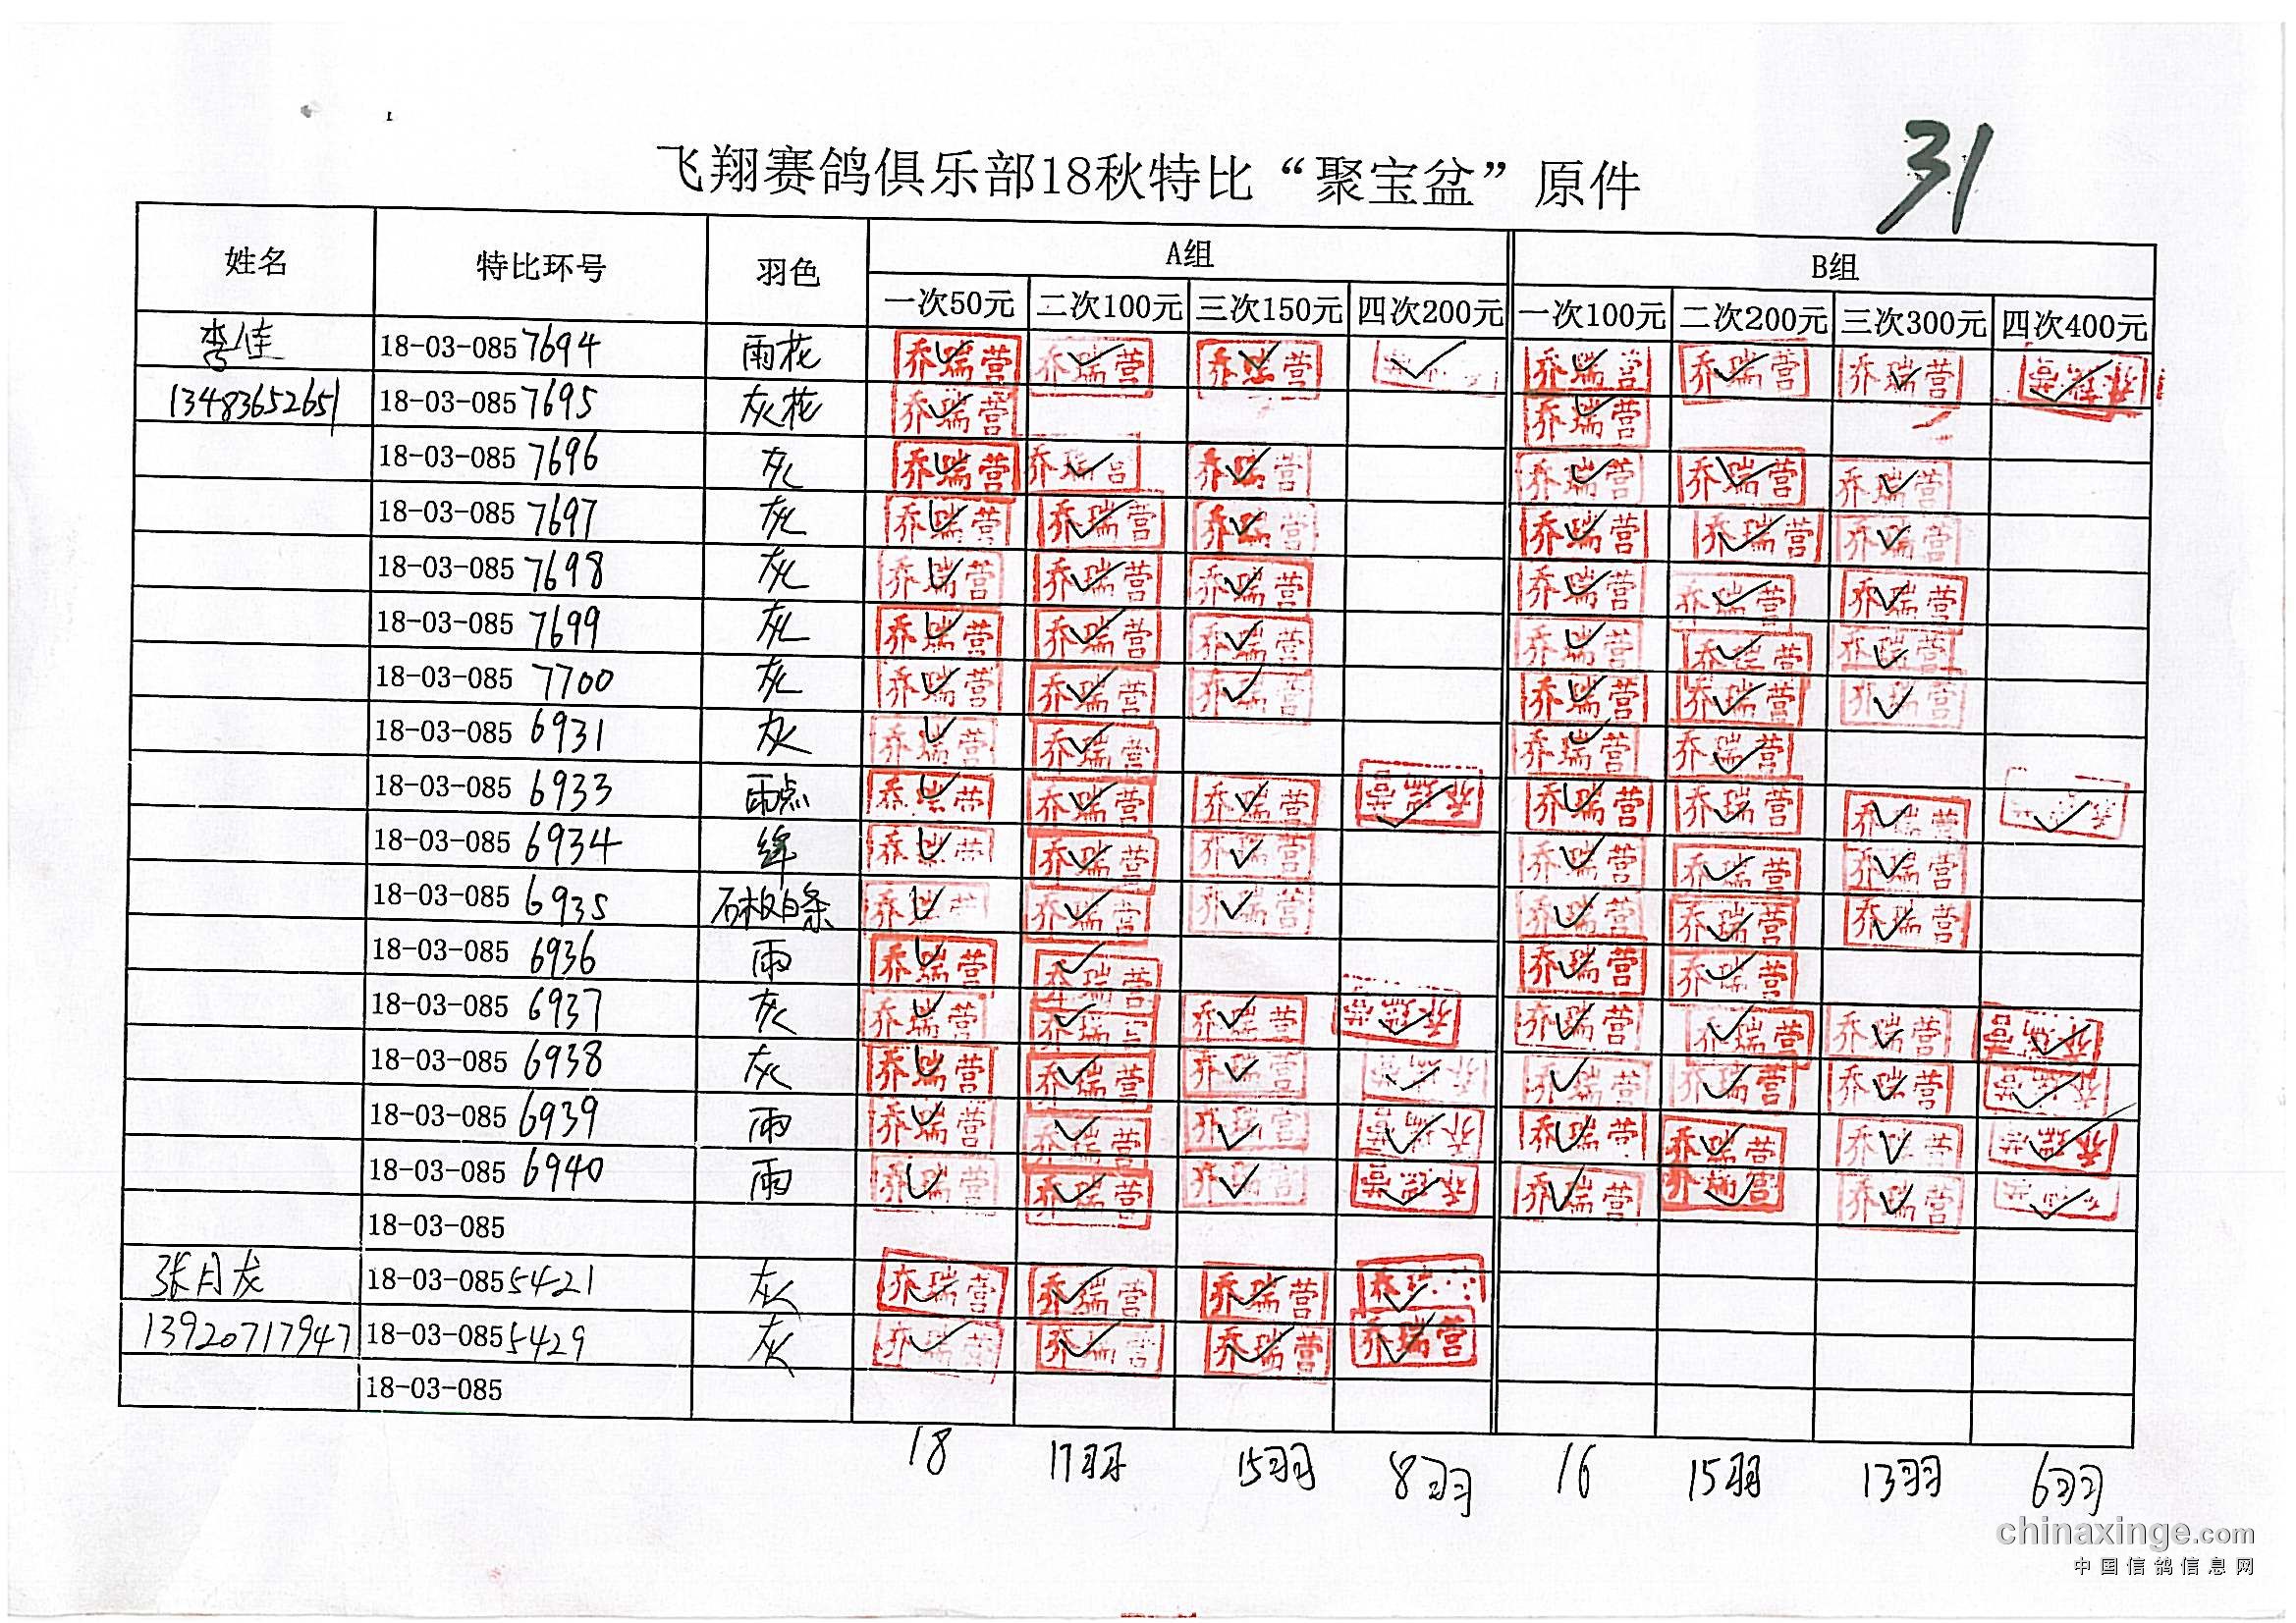 31
飞翔赛鸽俱乐部18秋特比“聚宝盆”原件
姓名 特比环号 羽色 A组 B组
一次50元 二次100元 三次150元 四次200元 一次100元 二次200元 三次300元 四次400元
李佳 18-03-085 7694 雨花 乔瑞营 乔瑞营 乔瑞营 乔瑞营 乔瑞营 乔瑞营 乔瑞营
13483652651 18-03-085 7695 灰花 乔瑞营 乔瑞营
18-03-085 7696 灰 乔瑞营 乔瑞营 乔瑞营 乔瑞营 乔瑞营 乔瑞营
18-03-085 7697 灰 乔瑞营 乔瑞营 乔瑞营 乔瑞营 乔瑞营 乔瑞营
18-03-085 7698 灰 乔瑞营 乔瑞营 乔瑞营 乔瑞营 乔瑞营 乔瑞营
18-03-085 7699 灰 乔瑞营 乔瑞营 乔瑞营 乔瑞营 乔瑞营 乔瑞营
18-03-085 7700 灰 乔瑞营 乔瑞营 乔瑞营 乔瑞营 乔瑞营 乔瑞营
18-03-085 6931 灰 乔瑞营 乔瑞营 乔瑞营 乔瑞营
18-03-085 6933 雨点 乔瑞营 乔瑞营 乔瑞营 乔瑞营 乔瑞营 乔瑞营 乔瑞营
18-03-085 6934 绛 乔瑞营 乔瑞营 乔瑞营 乔瑞营 乔瑞营 乔瑞营
18-03-085 6935 石板白条 乔瑞营 乔瑞营 乔瑞营 乔瑞营 乔瑞营 乔瑞营
18-03-085 6936 雨 乔瑞营 乔瑞营 乔瑞营 乔瑞营
18-03-085 6937 灰 乔瑞营 乔瑞营 乔瑞营 乔瑞营 乔瑞营 乔瑞营 乔瑞营 乔瑞营
18-03-085 6938 灰 乔瑞营 乔瑞营 乔瑞营 乔瑞营 乔瑞营 乔瑞营 乔瑞营 乔瑞营
18-03-085 6939 雨 乔瑞营 乔瑞营 乔瑞营 乔瑞营 乔瑞营 乔瑞营 乔瑞营 乔瑞营
18-03-085 6940 雨 乔瑞营 乔瑞营 乔瑞营 乔瑞营 乔瑞营 乔瑞营 乔瑞营
18-03-085
张月龙 18-03-085 5421 灰 乔瑞营 乔瑞营 乔瑞营 乔瑞
13920717947 18-03-085 5429 灰 乔瑞营 乔瑞营 乔瑞营 乔瑞营
18-03-085
18 17羽 15羽 8羽 16 15羽 13羽 6羽
chinaxinge.com
中国信鸽信息网